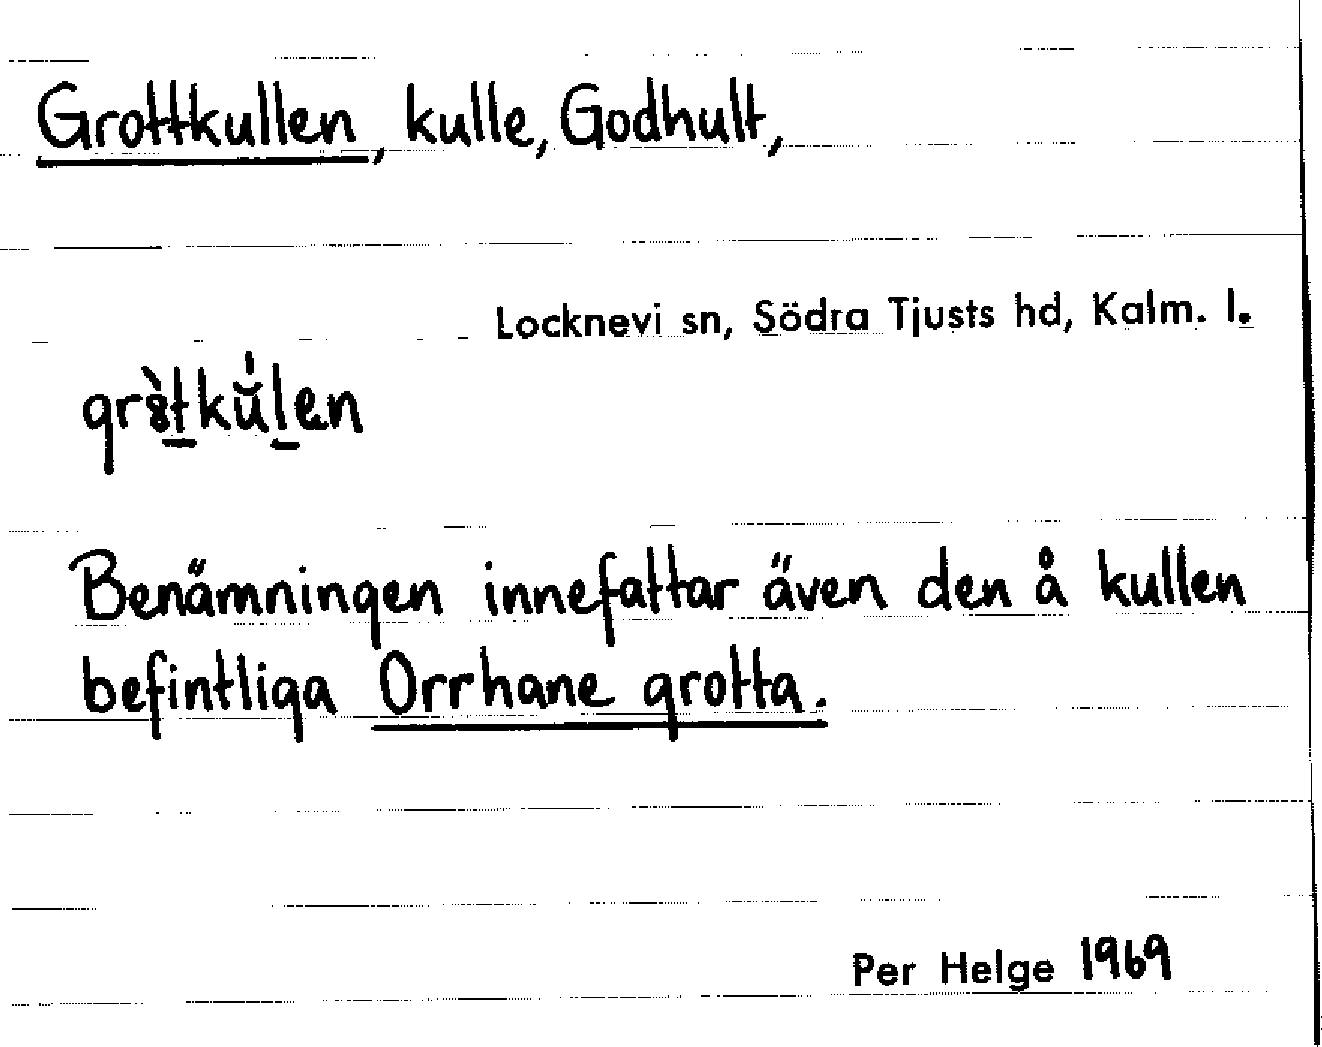 Grottkullen, kulle, Godhult,
Locknevi sn, Södra Tjusts hd, Kalm. l.
Benämningen innefattar även den å kullen
befintliga Orrhane grotta.
Per Helge 1969